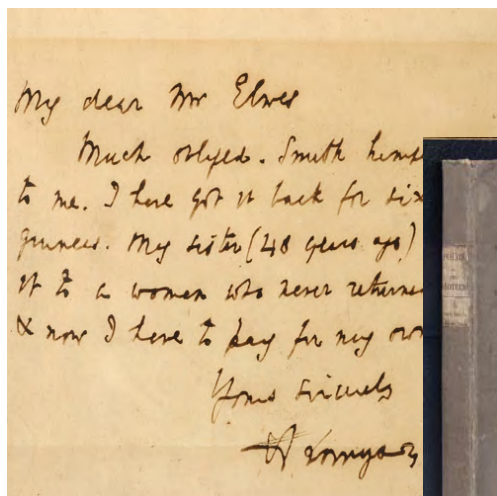 My dear Mr Elwes
Much obliged. Smith
to me. I have got it back for six
guineas. My sister (48 years ago)
it to a woman who never
& now I have to pay for my own
Yours sincerely
A Tennyson
POEMS